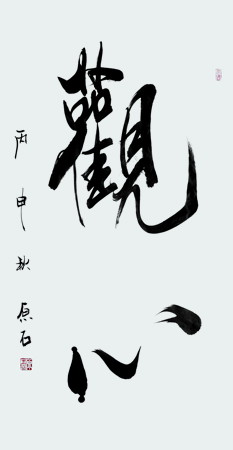 觀心
丙申秋 原石